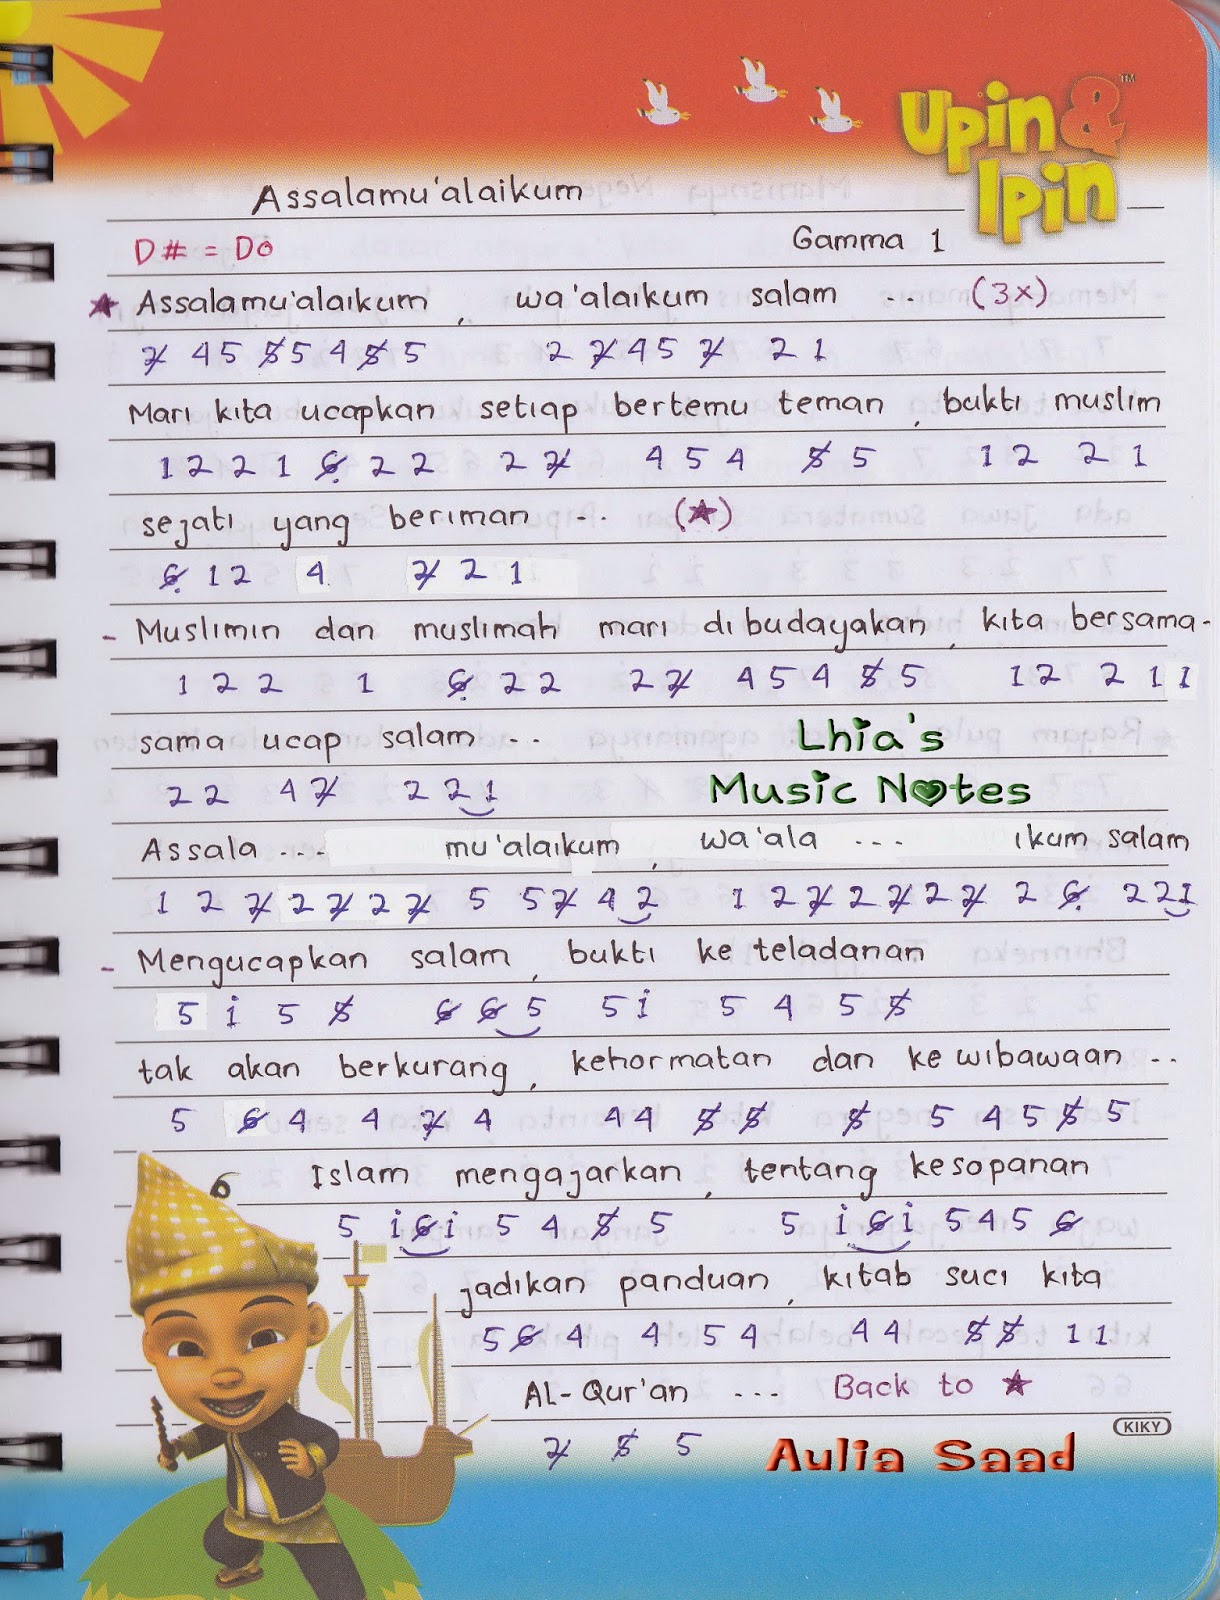 Upin & Ipin™
Assalamu'alaikum
D# = Do
Gamma 1
★ Assalamu'alaikum , wa'alaikum salam ... (3x)
2̸ 4 5 5̸ 5 4 5̸ 5 2 2̸ 4 5 2̸ 2 1
Mari kita ucapkan setiap bertemu teman , bukti muslim
1 2 2 1 6̸̣ 2 2 2 2̸ 4 5 4 5̸ 5 1 2 2 1
sejati yang beriman ... (★)
6̸̣ 1 2 4 2̸ 2 1
- Muslimin dan muslimah mari dibudayakan , kita bersama-
1 2 2 1 6̸̣ 2 2 2 2̸ 4 5 4 5̸ 5 1 2 2 1 1
sama ucap salam ...
2 2 4 2̸ 2 2 1
Lhia's
Music Notes
Assala ... mu'alaikum , wa'ala ... ikum salam
1 2 2̸ 2 2̸ 2 2̸ 5 5 2̸ 4 2 1 2 2̸ 2 2̸ 2 2̸ 2 6̸̣ 2 2 1
- Mengucapkan salam , bukti ke teladanan
5 i 5 5̸ 6̸ 6̸ 5 5 i 5 4 5 5̸
tak akan berkurang , kehormatan dan ke wibawaan ..
5 6̸ 4 4 2̸ 4 4 4 5̸ 5̸ 5̸ 5 4 5 5̸ 5
Islam mengajarkan , tentang kesopanan
5 i 6̸ i 5 4 5̸ 5 5 i 6̸ i 5 4 5 6̸
jadikan panduan , kitab suci kita
5 6̸ 4 4 5 4 4 4 5̸ 5̸ 1 1
AL-Qur'an ... Back to ★
2̸ 5̸ 5
KIKY
Aulia Saad